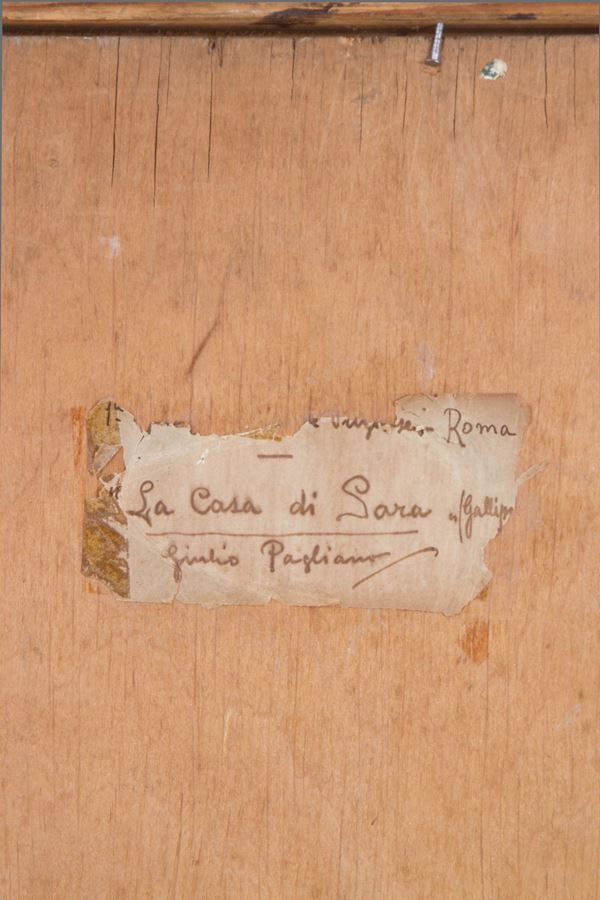 Roma
"La Casa di Sara" (Gallip
Giulio Pagliano